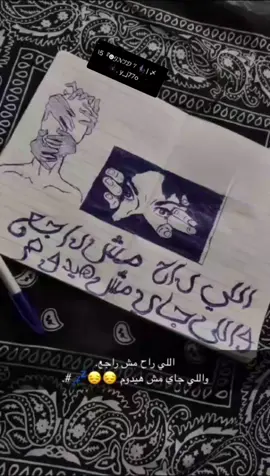 اللي راح مش راجع
واللي جاي مش هيدوم
اللي راح مش راجع
واللي جاي مش هيدوم 😔😔💤#.